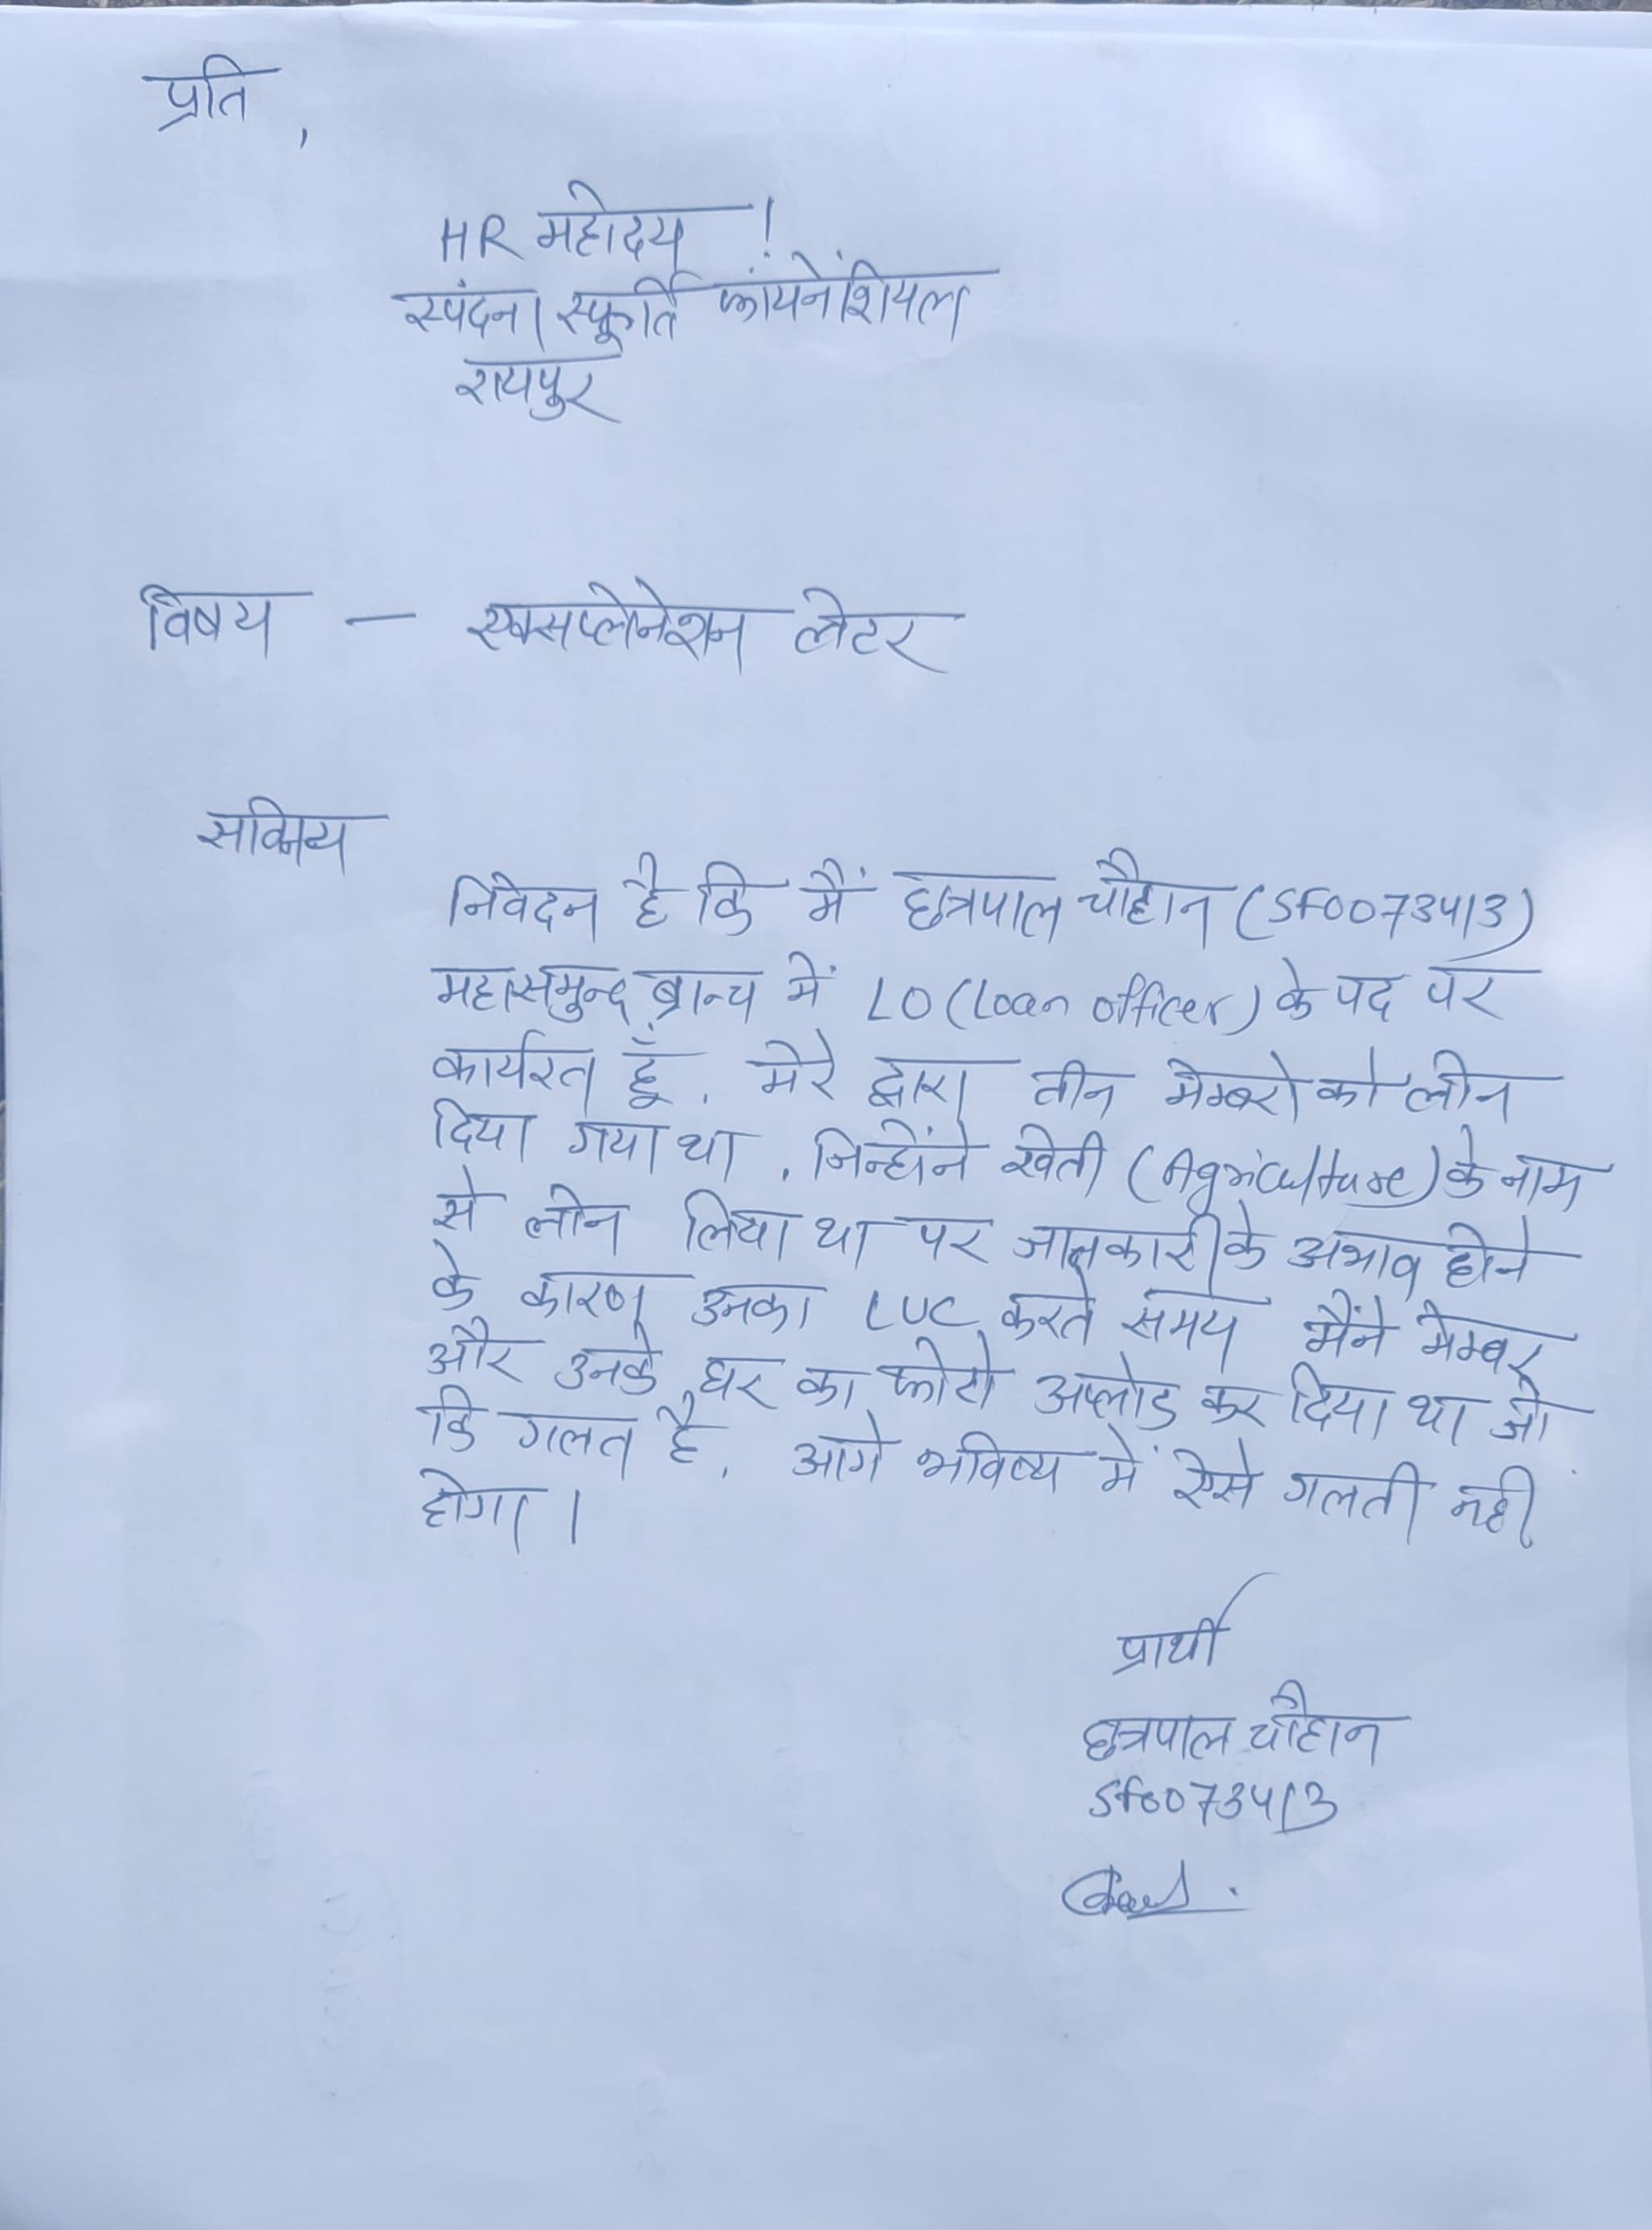 प्रति,
HR महोदय !
स्पंदना स्फूर्ति फांयनेंशियल
रायपुर
विषय — एक्सप्लेनेशन लेटर
सविनय
निवेदन है कि मैं छत्रपाल चौहान (SF0073413)
महासमुन्द ब्रान्च में LO (Loan officer) के पद पर
कार्यरत हूँ. मेरे द्वारा तीन मेम्बरो को लोन
दिया गया था. जिन्होंने खेती (Agriculture) के नाम
से लोन लिया था पर जानकारी के अभाव होने
के कारण उनका LUC करते समय मैंने मेम्बर
और उनके घर का फोटो अप्लोड कर दिया था जो
कि गलत है. आगे भविष्य में ऐसे गलती नही
होगा।
प्रार्थी
छत्रपाल चौहान
SF0073413